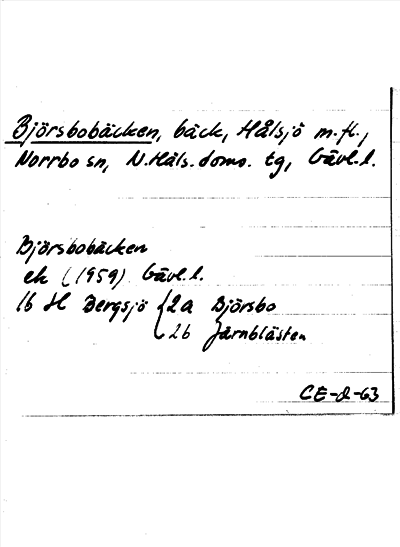 Björsbobäcken, bäck, Hålsjö m.fl.,
Norrbo sn, N.Häls. doms. tg, Gävl.l.
Björsbobäcken
ek (1959) Gävl.l.
16 H Bergsjö { 2a Björsbo
2b Järnblästen
CE-d-63